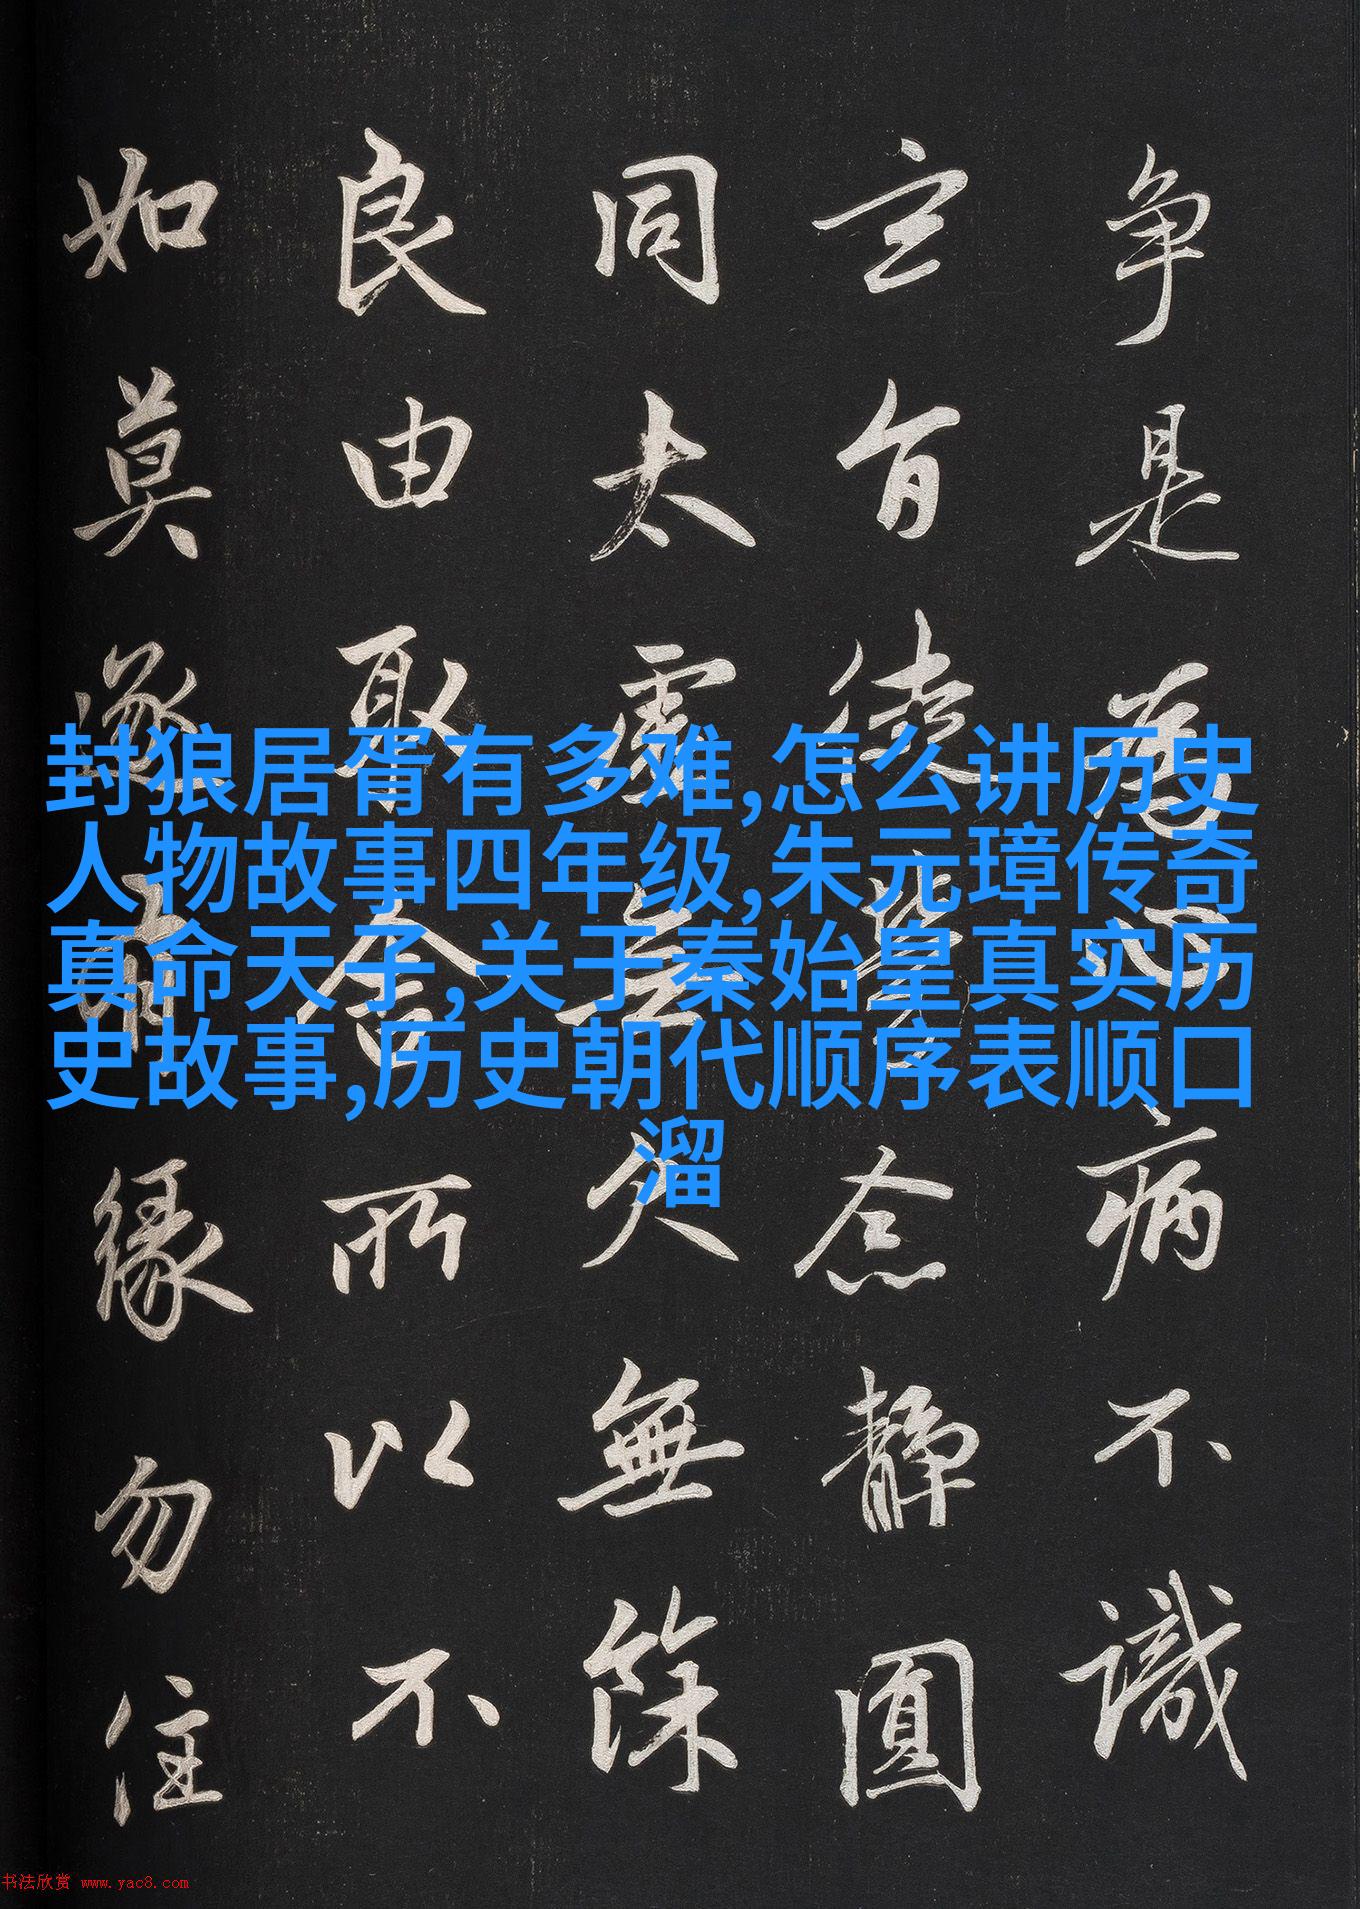 封狼居胥有多难,怎么讲历史
人物故事四年级,朱元璋传奇
真命天子,关于秦始皇真实历
史故事,历史朝代顺序表顺口
溜
争是為心病不識
玄旨徒勞念静圓
同太虛無欠無餘
良由取舍所以不
如莫逐有緣勿住
书法欣赏 www.yac8.com